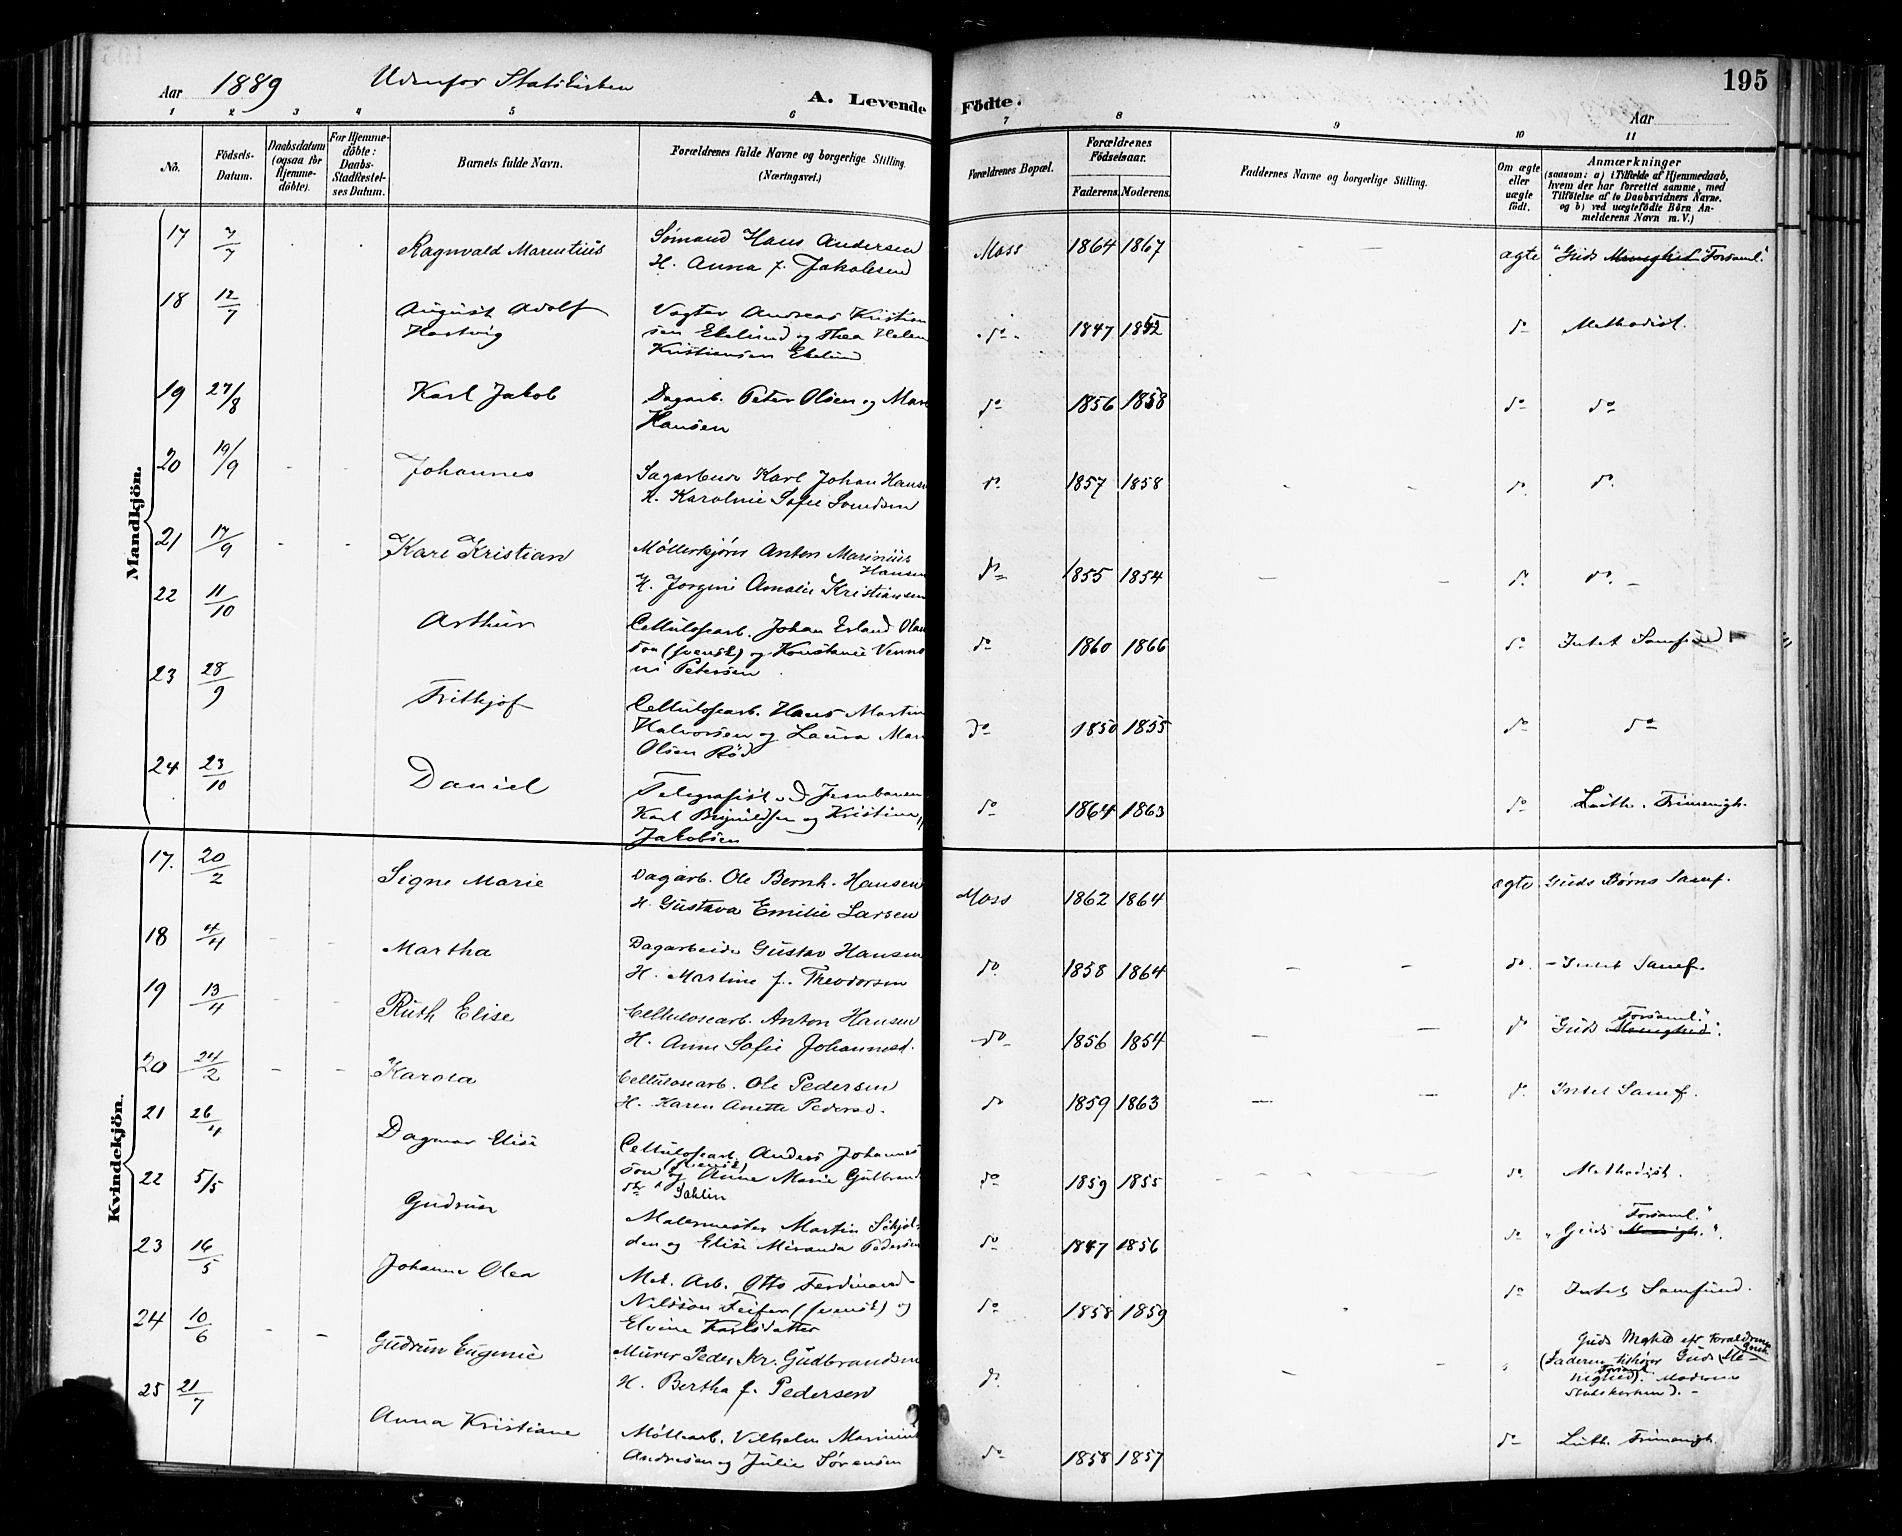 195
Aar 1889 Udenfor Statskirken A. Levende Födte. Aar
1 2 3 4 5 6 7 8 9 10 11
No.
Födsels-Datum.
Daabsdatum (ogsaa for Hjemmedöbte).
For Hjemmedöbte: Daabs-Stadfæstelses Datum.
Barnets fulde Navn.
Forældrenes fulde Navne og borgerlige Stilling. (Næringsvei.)
Forældrenes Bopæl.
Forældrenes Födselsaar.
Faderens. Moderens.
Faddernes Navne og borgerlige Stilling.
Om ægte eller uægte født.
Anmærkninger
(saasom: a) i Tilfælde af Hjemmedaab, hvem der har forrettet samme, med Tilföielse af to Daabsvidners Navne. og b) ved uægtefödte Börn Anmelderens Navn m. V.)
Mandkjön.
17 7/7 Ragnvald Marentius Sømand Hans Andersen Moss 1864 1867 ægte "Guds Menighed Forsaml."
H. Anna f. Jakobsen
18 12/7 August Adolf Vogter Andreas Kristian do 1847 1852 do Methodist.
Hartvig sen Ekelund og Thea Helen
Kristiansen Ekelund
19 27/8 Karl Jakob Dagarb. Peter Olsen og Mare do 1856 1858 do do
Hansen
20 19/9 Johannes Sagarbeide Karl Johan Hansen do 1857 1858 do do.
H. Karoline Sofie
21 17/9 Kare Kristian Møllerkjører Anton Marinius do 1855 1854 do do.
Hansen
H. Jorgine Amalie Kristiansen
22 11/10 Arthur Cellulosearb. Johan Erland Olau do 1860 1866 do Intet Samfund
son (svensk) og Konstanse
Petersen
23 28/9 Frithjof Cellulosearb. Hans Martin do 1850 1855 do do
Halvorsen og Laura Mari
Olsen Rød
24 23/10 Daniel Telegrafist v. Jernbanen do 1864 1863 do Luth. Frimenigh.
Karl og Kristine
Jakobsen
Kvindekjön.
17. 20/2 Signe Marie Dagarb. Ole Bernh. Hansen Moss 1862 1864 ægte Guds Børns Samf.
H. Gustava Emilie Larsen
18 4/4 Martha Dagarbeide Gustav Hansen do 1858 1864 do. Intet Samf.
H. Martine f. Theodorsen
19 13/4 Ruth Elise Cellulosearb. Anton Hansen do 1856 1854 do "Guds Menighed Forsaml."
H. Anne Sofie Johannesd.
20 24/2 Karola Cellulosearb. Ole Pedersen do 1859 1863 do. Intet Samf.
H. Karen Anette Pedersd.
21 26/4 Dagmar Elise Cellulosearb. Anders Johannes do 1859 1855 do Methodist.
son (svensk) og Anne Marie Gulbrand
str Sahlin
22 5/5 Gudrun Malermester Martin Skjol do 1847 1856 do "Guds Menigh. Forsaml."
den og Elise Miranda Pedersen
23 16/5 Johanne Olea Mek. Arb. Otto Ferdinand do 1858 1859 do Intet Samfund.
Nilsson Feifer (svensk) og
Elvine Karlsdatter
24 10/6 Gudrun Eugenie Murer Peder Kr. Gudbrandsen do. Guds Mghed eft Forældrenes Ønsk
H. Bertha f. Pedersen (Faderen tilhører Guds Me-
nighed Forsaml. Moderen
Statskirken).
25 21/7 Anna Kristiane Møllearb. Vilhelm Marinius do 1858 1857 do Luth. Frimenigh.
Andresen og Julie Sørensen